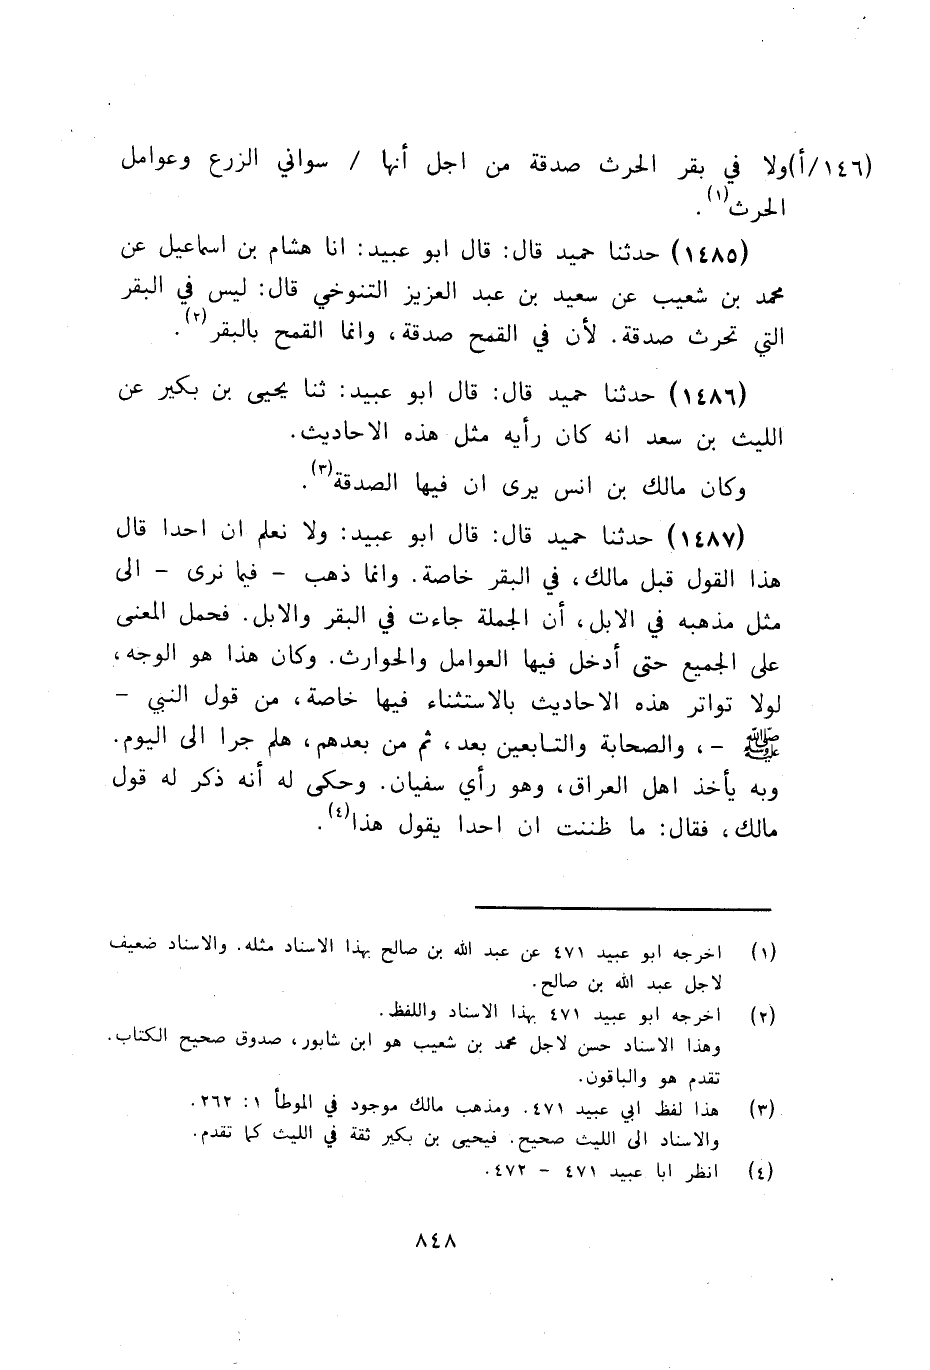 (١٤٦/أ)ولا في بقر الحرث صدقة من اجل أنها / سواني الزرع وعوامل
الحرث(١).
(١٤٨٥) حدثنا حميد قال: قال ابو عبيد: انا هشام بن اسماعيل عن
محمد بن شعيب عن سعيد بن عبد العزيز التنوخي قال: ليس في البقر
التي تحرث صدقة. لأن في القمح صدقة، وانما القمح بالبقر(٢).
(١٤٨٦) حدثنا حميد قال: قال ابو عبيد: ثنا يحيى بن بكير عن
الليث بن سعد انه كان رأيه مثل هذه الاحاديث.
وكان مالك بن انس يرى ان فيها الصدقة(٣).
(١٤٨٧) حدثنا حميد قال: قال ابو عبيد: ولا نعلم ان احدا قال
هذا القول قبل مالك، في البقر خاصة. وانما ذهب - فيما نرى - الى
مثل مذهبه في الابل، أن الجملة جاءت في البقر والابل. فحمل المعنى
على الجميع حتى أدخل فيها العوامل والحوارث. وكان هذا هو الوجه،
لولا تواتر هذه الاحاديث بالاستثناء فيها خاصة، من قول النبي -
ﷺ -، والصحابة والتابعين بعد، ثم من بعدهم، هلم جرا الى اليوم.
وبه يأخذ اهل العراق، وهو رأي سفيان. وحكى له أنه ذكر له قول
مالك، فقال: ما ظننت ان احدا يقول هذا(٤).
(١) اخرجه ابو عبيد ٤٧١ عن عبد الله بن صالح بهذا الاسناد مثله. والاسناد ضعيف
لاجل عبد الله بن صالح.
(٢) اخرجه ابو عبيد ٤٧١ بهذا الاسناد واللفظ.
وهذا الاسناد حسن لاجل محمد بن شعيب هو ابن شابور، صدوق صحيح الكتاب.
تقدم هو والباقون.
(٣) هذا لفظ ابي عبيد ٤٧١. ومذهب مالك موجود في الموطأ ١: ٢٦٢.
والاسناد الى الليث صحيح. فيحيى بن بكير ثقة في الليث كما تقدم.
(٤) انظر ابا عبيد ٤٧١ - ٤٧٢.
٨٤٨